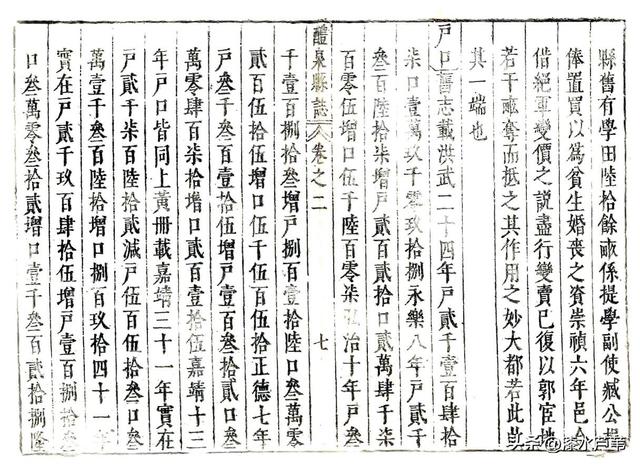 縣舊有學田陸拾餘畝係提學副使臧公捐
俸置買以為貧生婚喪之資崇禎六年邑令
借絕軍變價之說盡行變賣已復以郭宦地
若干畝奪而抵之其作用之妙大都若此此
其一端也
戶口舊志載洪武二十四年戶貳千壹百肆拾
柒口壹萬玖千零玖拾捌永樂八年戶貳千
叄百陸拾柒增戶貳百貳拾口貳萬肆千柒
百零伍增口伍千陸百零柒弘治十年戶貳
醴泉縣誌 卷之二 七
千壹百捌拾叄增戶捌百壹拾陸口叄萬零
貳百伍拾伍增口伍千伍百伍拾正德七年
戶叄千叄百壹拾伍增戶壹百叄拾貳口叄
萬零肆百柒拾增口貳百壹拾伍嘉靖十三
年戶口皆同上黃冊載嘉靖三十一年實在
戶貳千柒百陸拾貳減戶伍百伍拾叄口叄
萬壹千叄百陸拾增口捌百玖拾四十一年
實在戶貳千玖百肆拾伍增戶壹百捌拾叄
口叄萬零叄拾貳增口壹千叄百貳拾捌隆
头条 @漆水芦苇